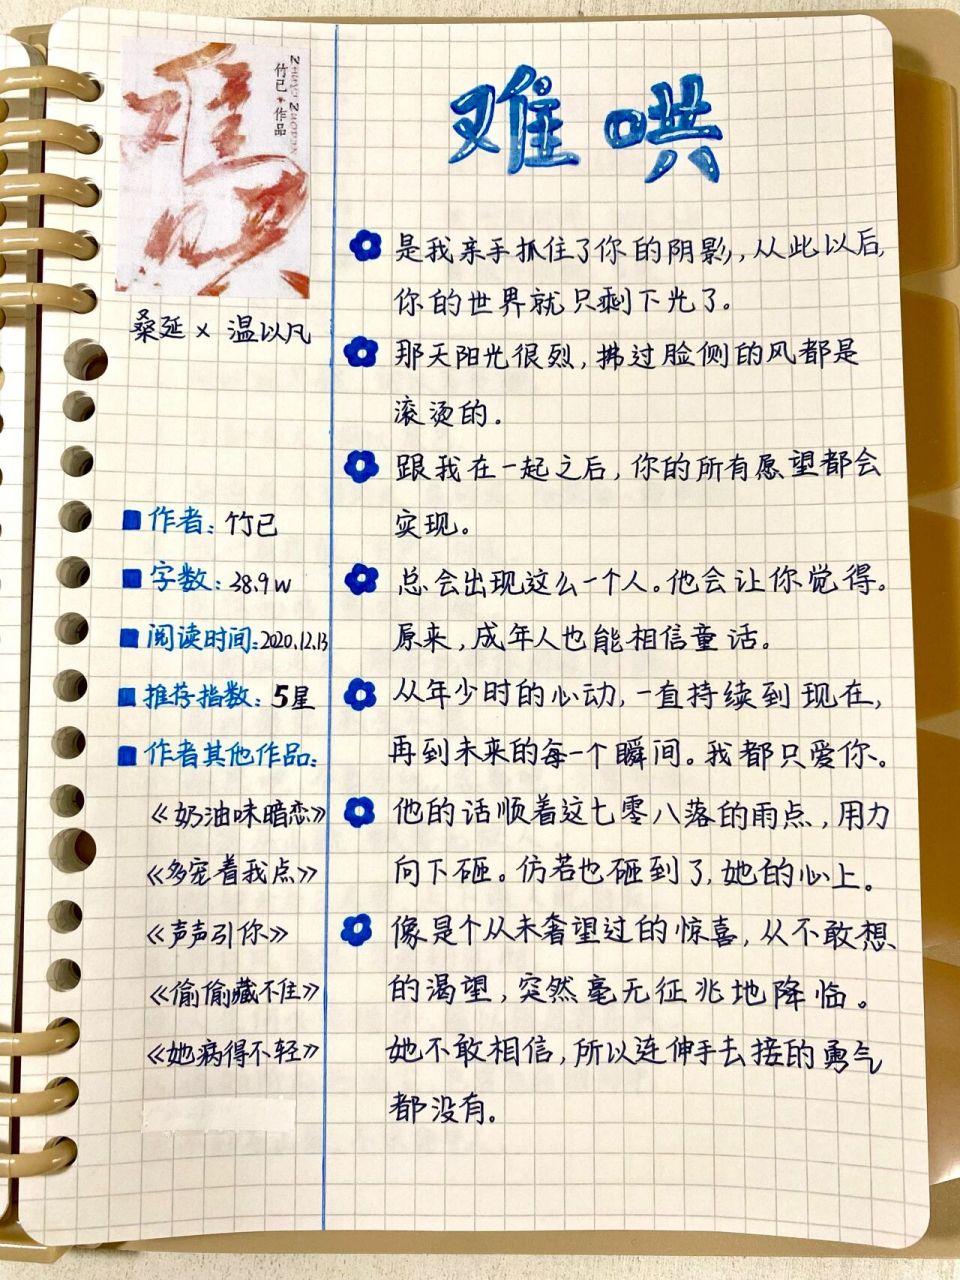 难哄
竹已·作品
ZHUYI ZUOPIN
桑延 x 温以凡
作者：竹已
字数：38.9w
阅读时间：2020.12.13
推荐指数：5星
作者其他作品：
《奶油味暗恋》
《多宠着我点》
《声声引你》
《偷偷藏不住》
《她病得不轻》
难哄
是我亲手抓住了你的阴影，从此以后，
你的世界就只剩下光了。
那天阳光很烈，拂过脸侧的风都是
滚烫的。
跟我在一起之后，你的所有愿望都会
实现。
总会出现这么一个人。他会让你觉得。
原来，成年人也能相信童话。
从年少时的心动，一直持续到现在，
再到未来的每一个瞬间。我都只爱你。
他的话顺着这七零八落的雨点，用力
向下砸。仿若也砸到了，她的心上。
像是个从未奢望过的惊喜，从不敢想
的渴望，突然毫无征兆地降临。
她不敢相信，所以连伸手去接的勇气
都没有。